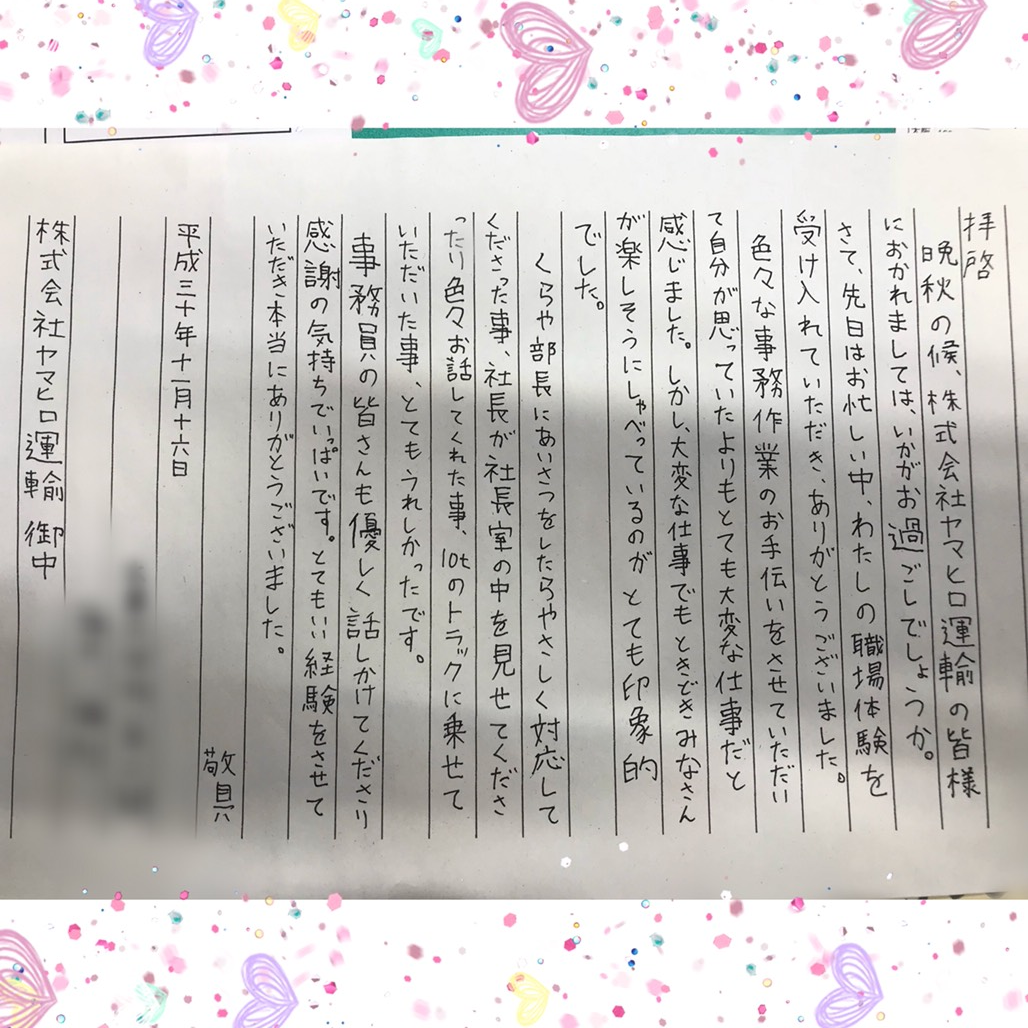 拝啓
晩秋の候、株式会社ヤマヒロ運輸の皆様
におかれましては、いかがお過ごしでしょうか。
さて、先日はお忙しい中、わたしの職場体験を
受け入れていただき、ありがとうございました。
色々な事務作業のお手伝いをさせていただい
て自分が思っていたよりもとても大変な仕事だと
感じました。しかし、大変な仕事でもときどきみなさん
が楽しそうにしゃべっているのがとても印象的
でした。
くらや部長にあいさつをしたらやさしく対応して
くださった事、社長が社長室の中を見せてくださ
ったり色々お話してくれた事、10tのトラックに乗せて
いただいた事、とてもうれしかったです。
事務員の皆さんも優しく話しかけてくださり
感謝の気持ちでいっぱいです。とてもいい経験をさせて
いただき本当にありがとうございました。
敬具
平成三十年十一月十六日
株式会社ヤマヒロ運輸 御中